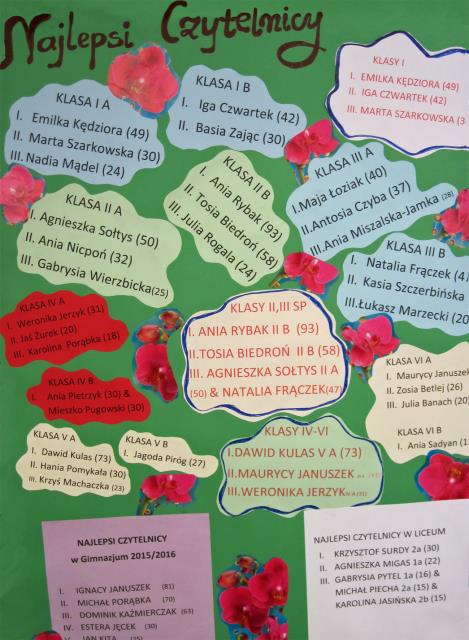 Najlepsi Czytelnicy
KLASA I A
I. Emilka Kędziora (49)
II. Marta Szarkowska (30)
III. Nadia Mądel (24)
KLASA I B
I. Iga Czwartek (42)
II. Basia Zając (30)
KLASY I
I. EMILKA KĘDZIORA (49)
II. IGA CZWARTEK (42)
III. MARTA SZARKOWSKA
KLASA II A
I. Agnieszka Sołtys (50)
II. Ania Nicpoń (32)
III. Gabrysia Wierzbicka (25)
KLASA II B
I. Ania Rybak (93)
II. Tosia Biedroń (58)
III. Julia Rogala (24)
KLASA III A
I. Maja Łoziak (40)
II. Antosia Czyba (37)
III. Ania Miszalska-Jamka (28)
KLASA III B
I. Natalia Frączek
II. Kasia Szczerbińska
III. Łukasz Marzecki (20
KLASA IV A
I. Weronika Jerzyk (31)
II. Jaś Żurek (20)
III. Karolina Porąbka (18)
KLASA IV B
I. Ania Pietrzyk (30) &
Mieszko Pugowski (30)
KLASY II,III SP
I. ANIA RYBAK II B (93)
II. TOSIA BIEDROŃ II B (58)
III. AGNIESZKA SOŁTYS II A
(50) & NATALIA FRĄCZEK (47)
KLASA VI A
I. Maurycy Januszek
II. Zosia Betlej (26)
III. Julia Banach (20)
KLASA VI B
I. Ania Sadyan
KLASA V A
I. Dawid Kulas (73)
II. Hania Pomykała (30)
III. Krzyś Machaczka (23)
KLASA V B
I. Jagoda Piróg (27)
KLASY IV-VI
I. DAWID KULAS V A (73)
II. MAURYCY JANUSZEK
III. WERONIKA JERZYK IV A (31)
NAJLEPSI CZYTELNICY
w Gimnazjum 2015/2016
I. IGNACY JANUSZEK (81)
II. MICHAŁ PORĄBKA (70)
III. DOMINIK KAŹMIERCZAK (63)
IV. ESTERA JĘCEK (30)
V. JAN KITA (25)
NAJLEPSI CZYTELNICY W LICEUM
I. KRZYSZTOF SURDY 2a (30)
II. AGNIESZKA MIGAS 1a (22)
III. GABRYSIA PYTEL 1a (16) &
MICHAŁ PIECHA 2a (15) &
KAROLINA JASIŃSKA 2b (15)